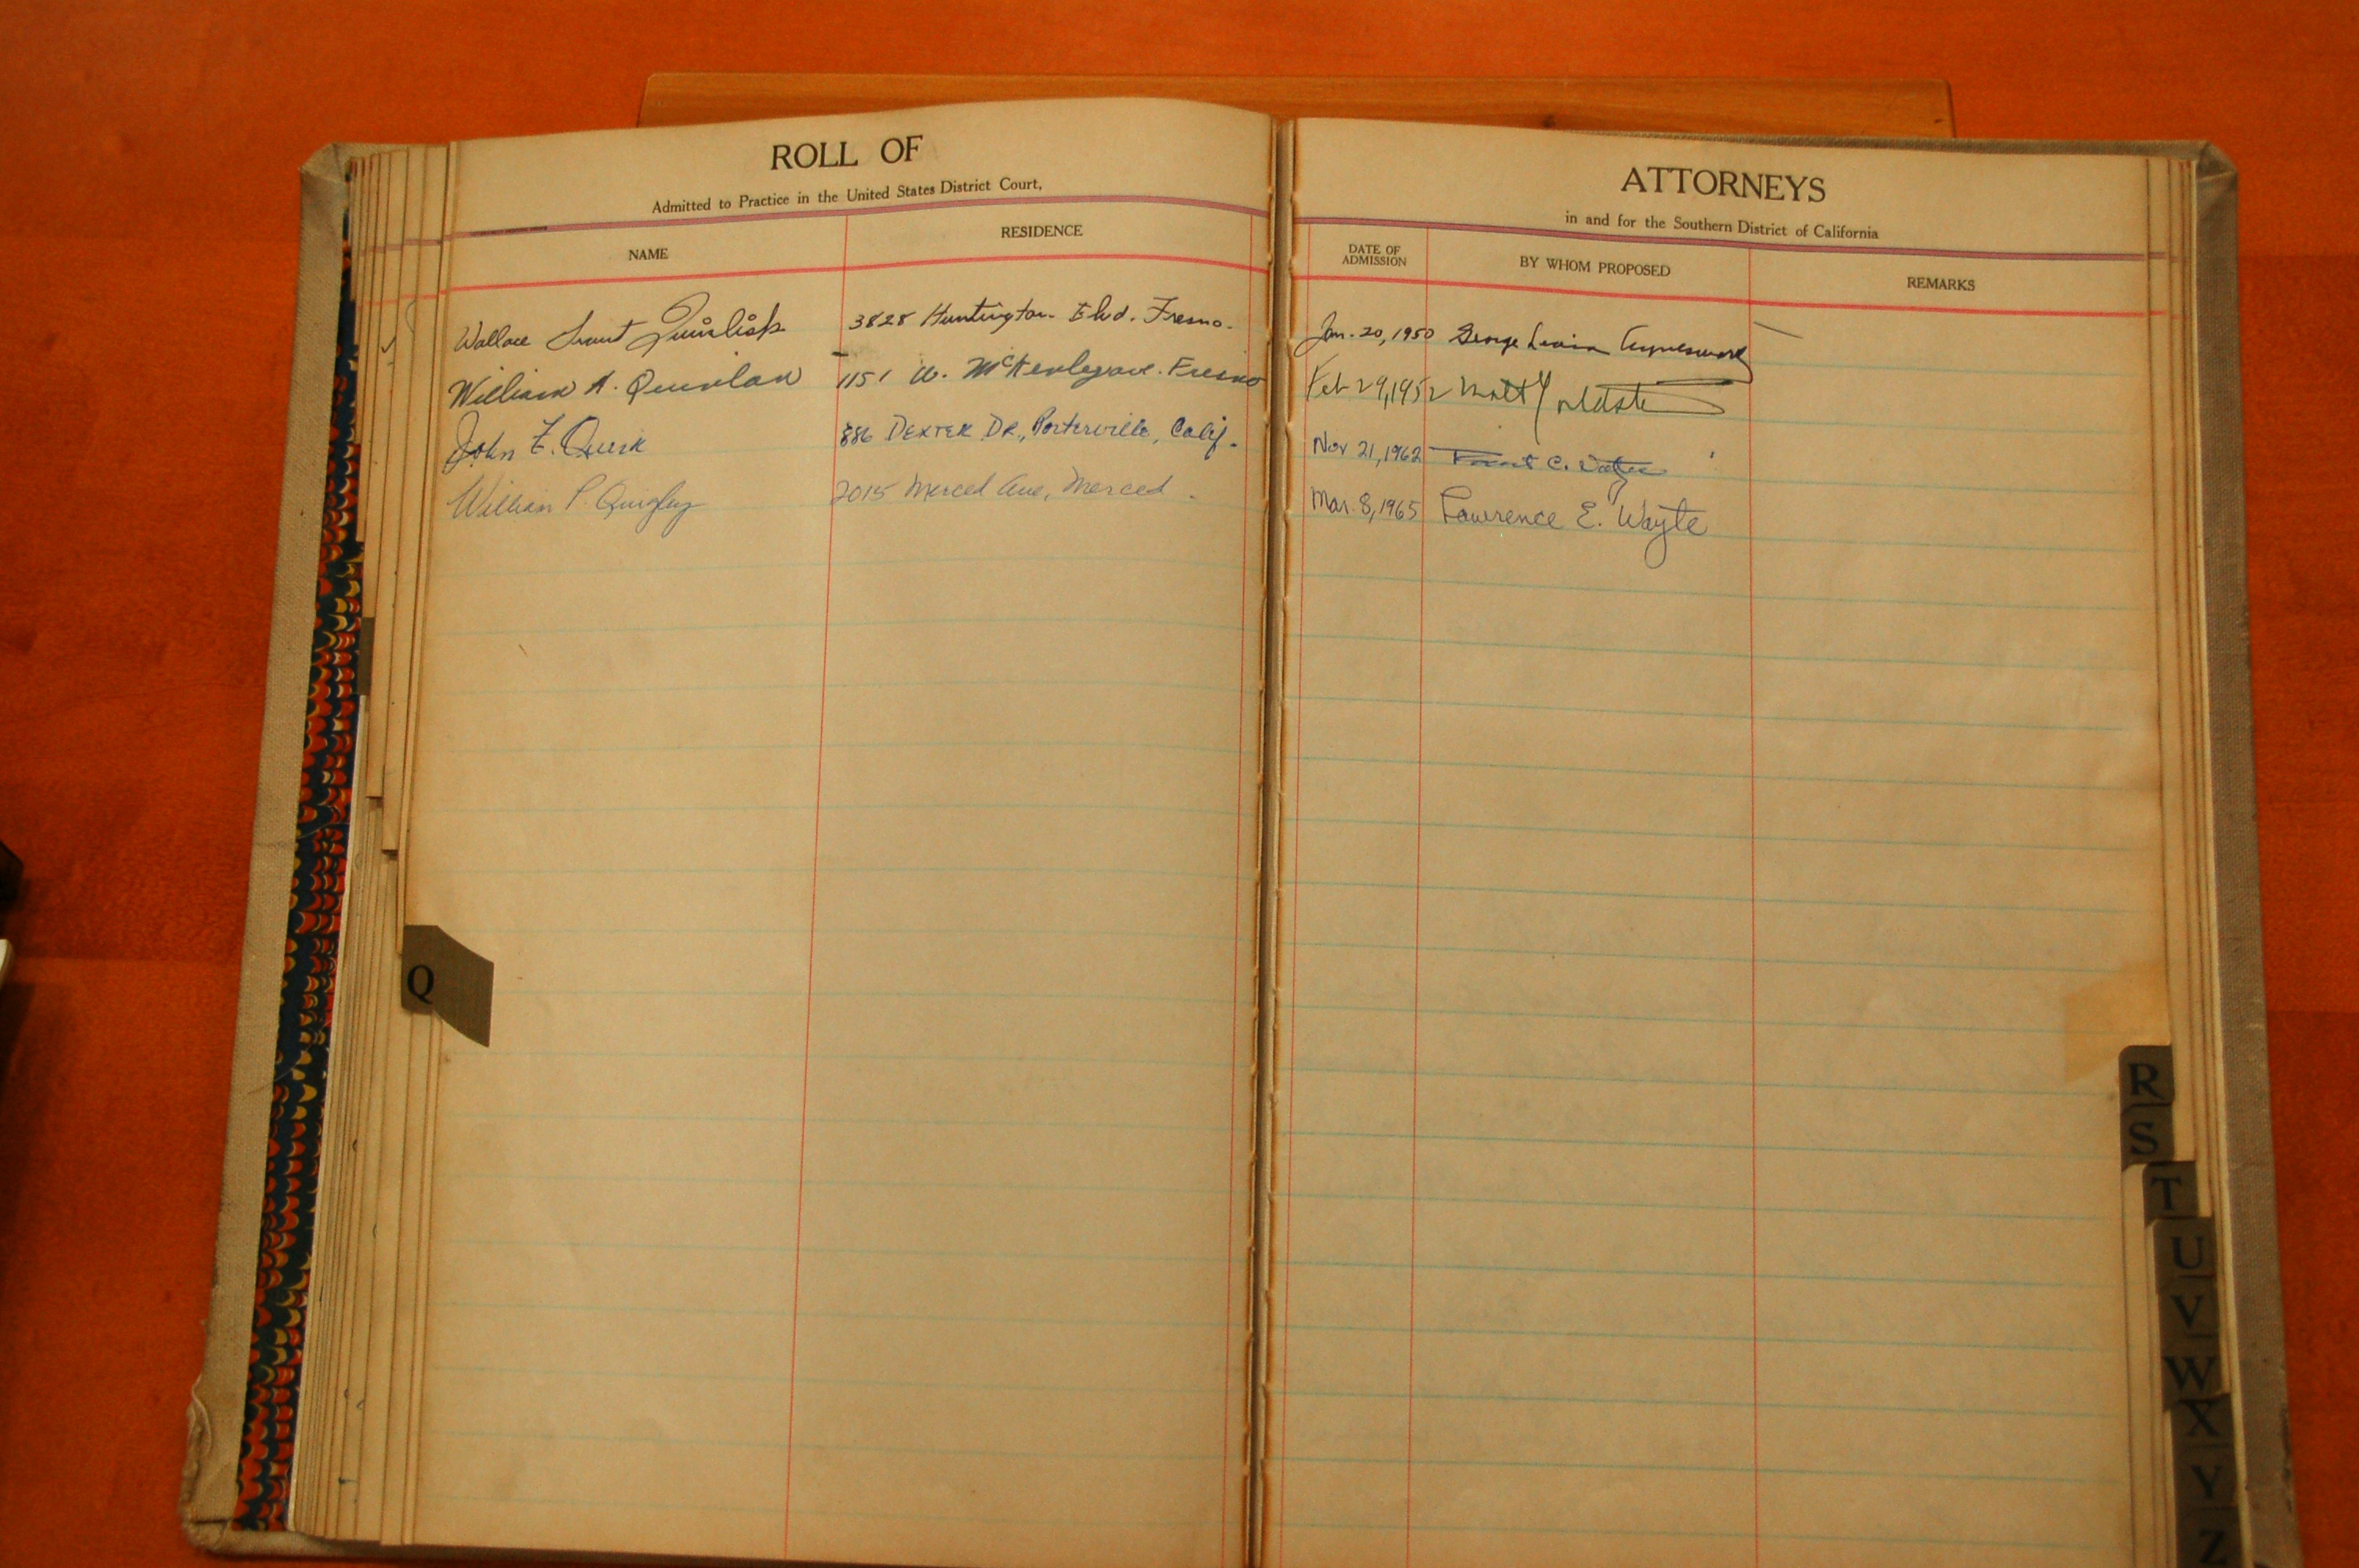 ROLL OF
Admitted to Practice in the United States District Court,
NAME RESIDENCE
ATTORNEYS
in and for the Southern District of California
DATE OF ADMISSION BY WHOM PROPOSED REMARKS
Wallace Quinlisk 3828 Huntington Blvd. Fresno. Jan. 20, 1950 George
William A. Quinlan 1151 W. McKenley ave. Fresno Feb 29, 1952 Matt Goldstein
John F. Quirk 886 DEXTER DR., Porterville, Calif. Nov 21, 1962
William P. Quigley 2015 Merced Ave, Merced. Mar. 8, 1965 Lawrence E. Wayte
Q
R
S
T
U
V
W
X
Y
Z